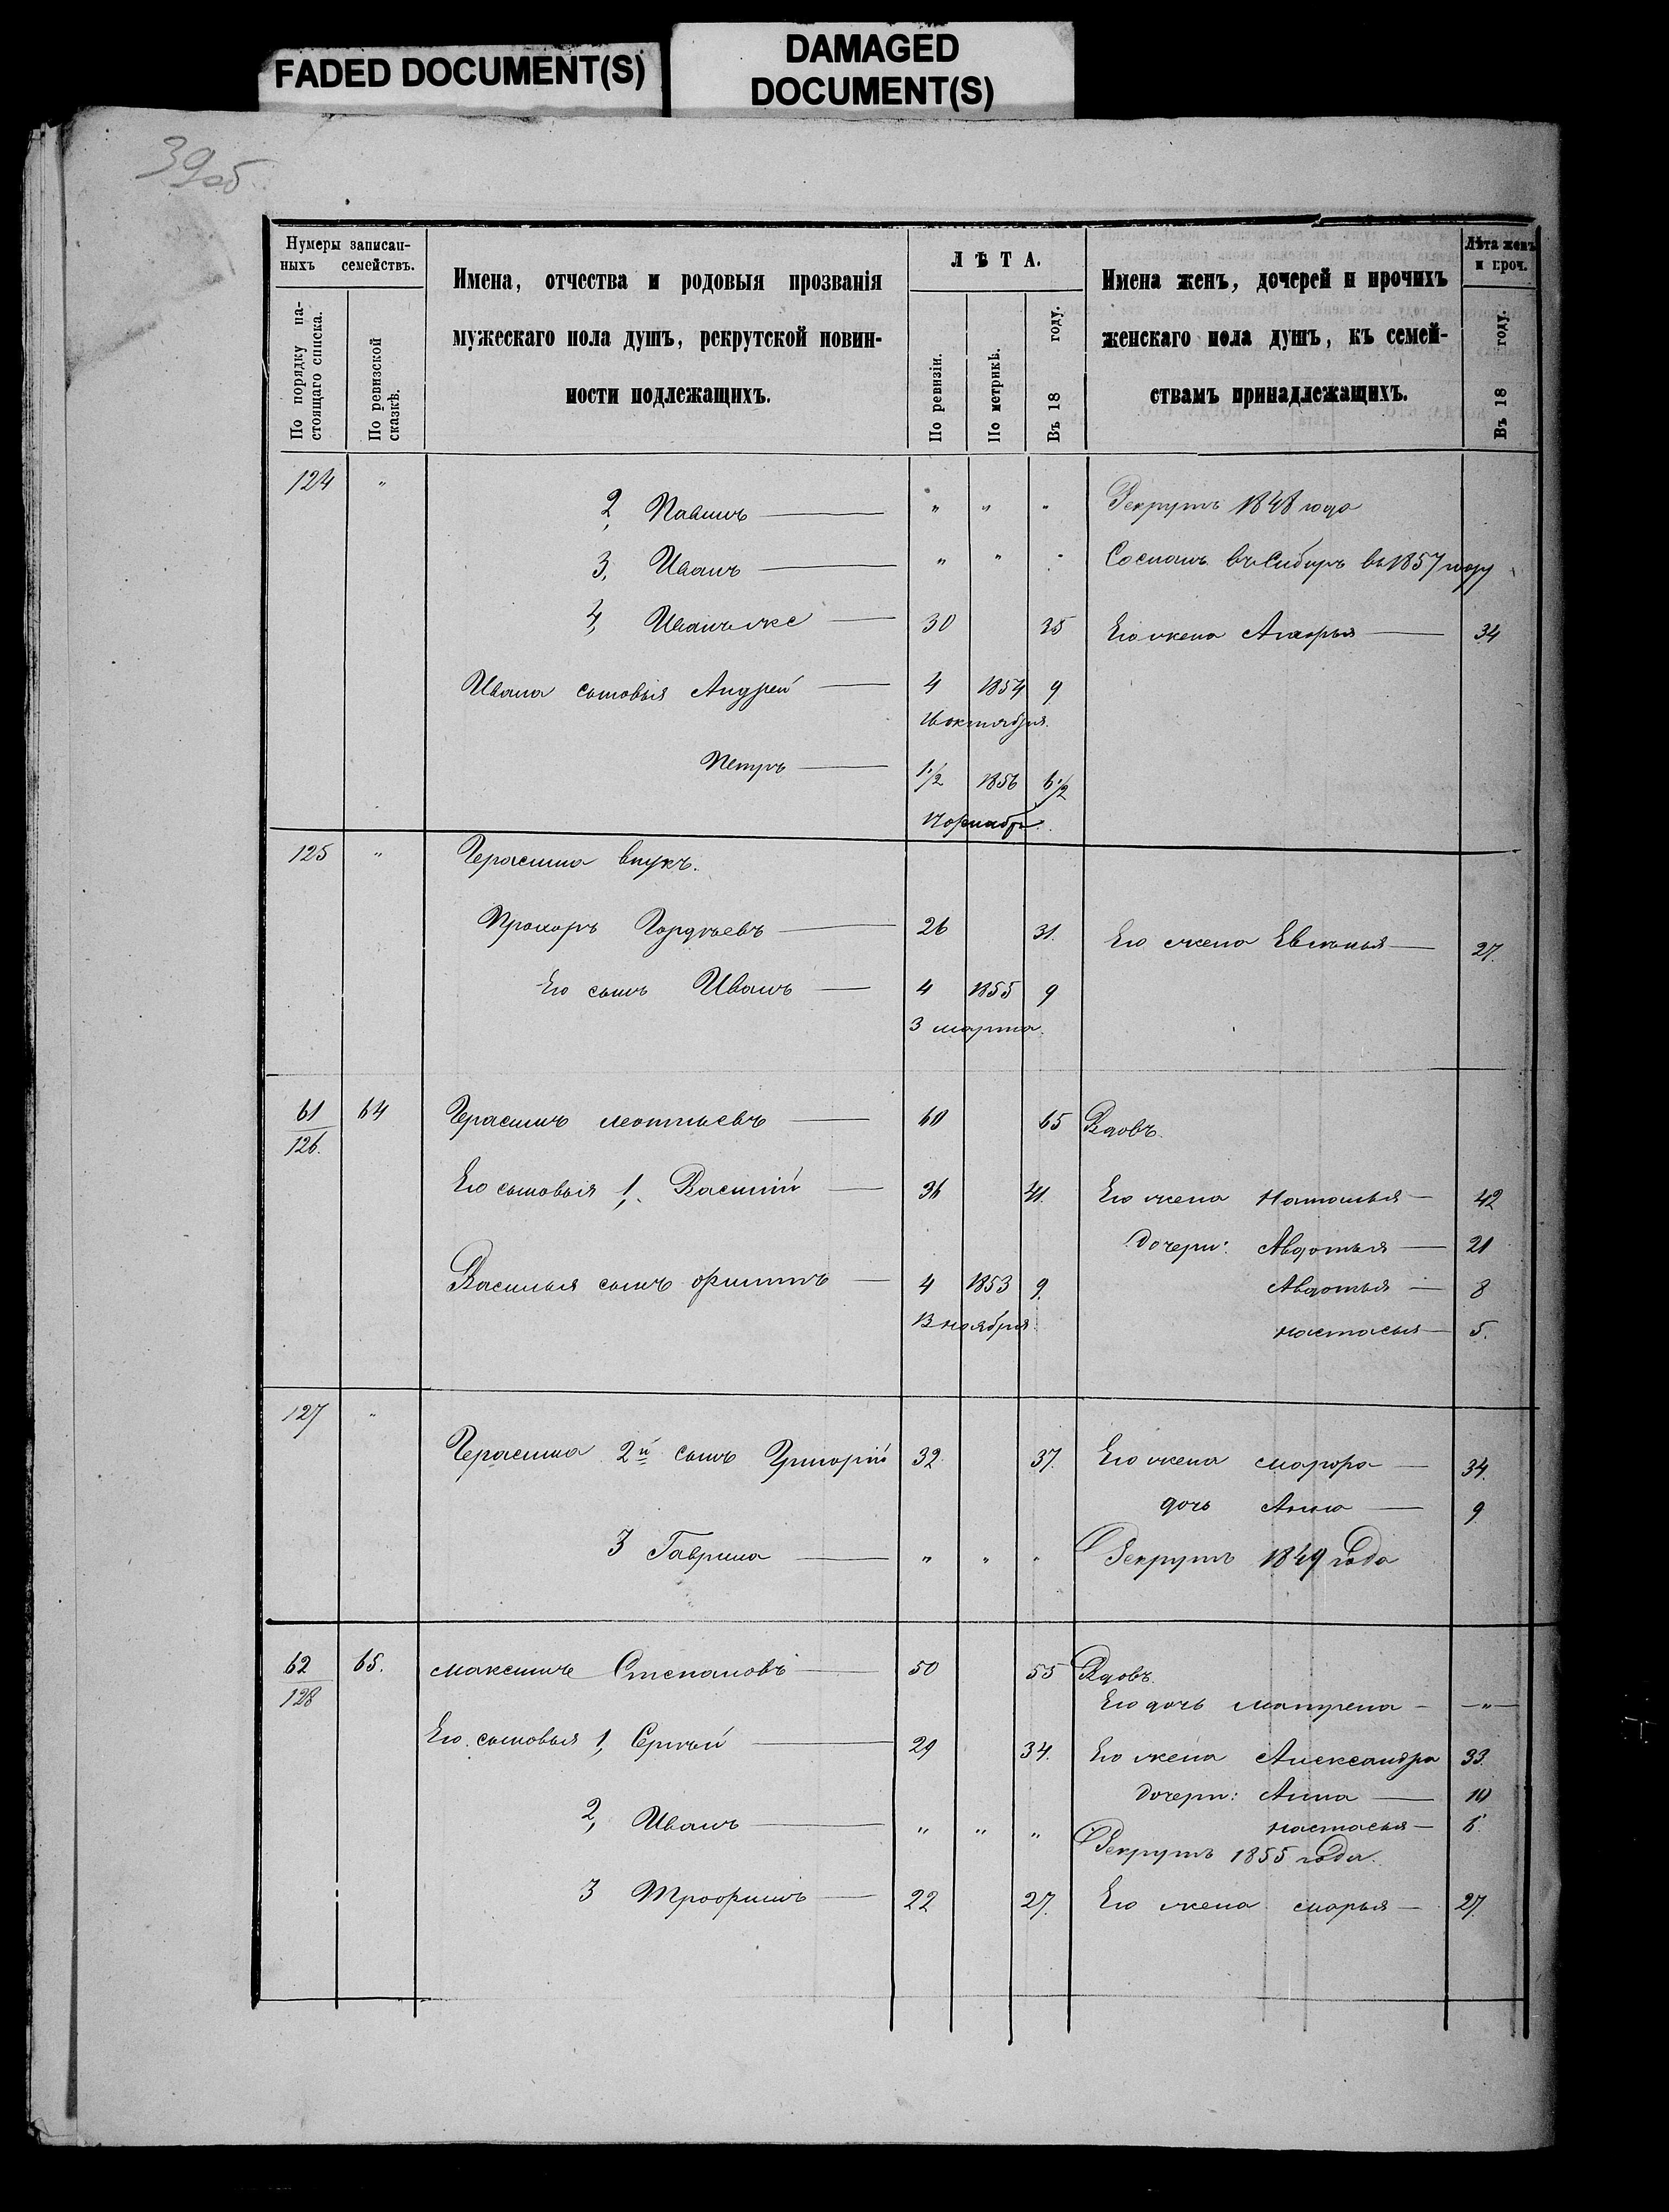 FADED DOCUMENT(S)
DAMAGED
DOCUMENT(S)
39об
Нумеры записан-
ныхъ семействъ.
По порядку на-
стоящаго списка.
По ревизской
сказкѣ.
Имена, отчества и родовыя прозванія
мужескаго пола душъ, рекрутской повин-
ности подлежащихъ.
ЛѢТА.
По ревизіи.
По метрикѣ.
Въ 18 году.
Имена женъ, дочерей и прочихъ
женскаго пола душъ, къ семей-
ствамъ принадлежащихъ.
Лѣта женъ
и проч.
Въ 18 году.
124 "
2, Павилъ — " " " Рекрутъ 1848 года
3, Иванъ — " " " Сосланъ въ Сибирь въ 1857 году
4, Иванъ же — 30 35 Его жена — 34
Ивана сыновья Андрей — 4 1854 9
16 октября.
Петръ — 1½ 1856 6½
125 " Герасима внукъ.
Прохоръ Гордѣевъ — 26 31. Его жена — 27.
Его сынъ Иванъ — 4 1855 9
3 марта.
61/126. 64 Герасимъ Леонтьевъ — 60 65 Вдовъ.
Его сыновья 1, Василій — 36 41. Его жена Наталья — 42
дочери: Авдотья — 21
Василья сынъ Филипъ — 4 1853 9. Авдотья — 8
13 ноября. Настасья — 5.
127 "
Герасима 2й сынъ Григорій 32. 37. Его жена Марфа — 34.
дочь Анна — 9
3 Гаврила — " " " Рекрутъ 1849 года
62/128 65. Максимъ Степановъ — 50 55 Вдовъ.
Его дочь Матрена — "
Его сыновья 1, Сергѣй — 29 34. Его жена Александра 33.
дочери: Анна — 10
2, Иванъ — " " " Настасья — 6.
Рекрутъ 1855 года.
3 Трофимъ — 22 27. Его жена Марья — 27.